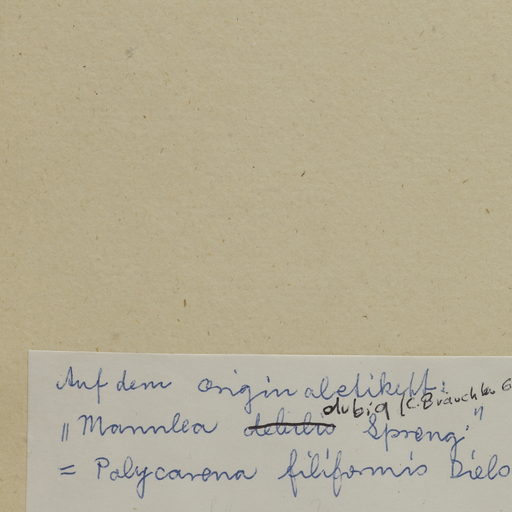 Auf dem originaletikett:
"Mannlea debilis dubia (K. Bräuchler Spreng."
= Polycarena filiformis Diels